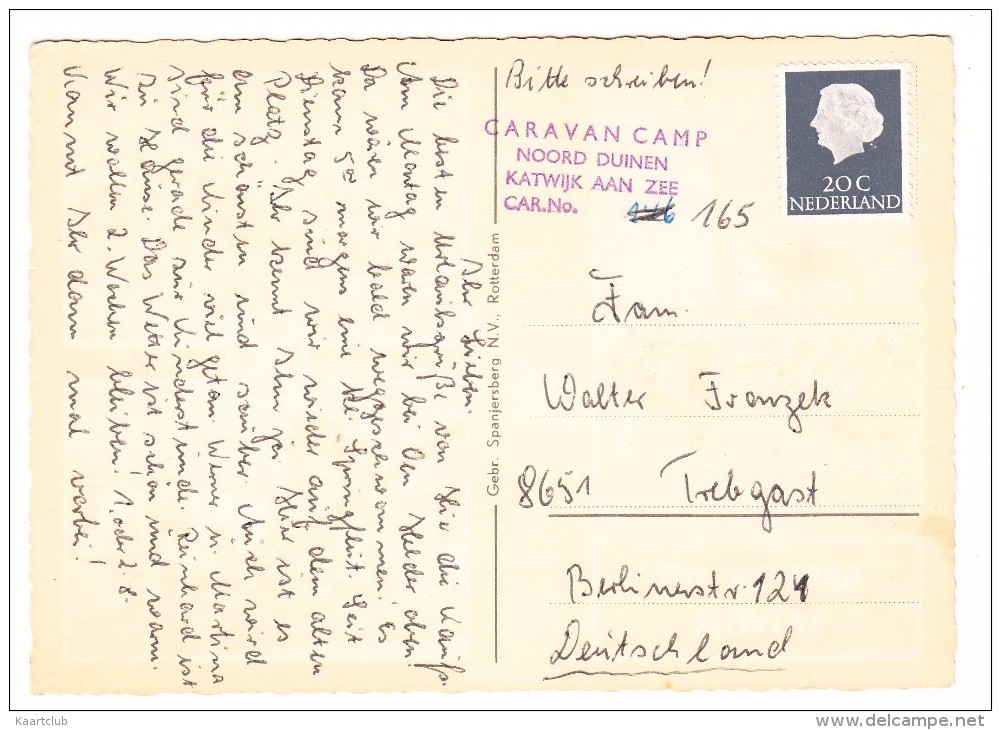 Bitte schreiben!
CARAVAN CAMP
NOORD DUINEN
KATWIJK AAN ZEE
CAR.No. 146 165
20 C
NEDERLAND
Fam.
Walter Franzek
8651 Trebgast
Berlinerstr. 121
Deutschland
Gebr. Spanjersberg N.V., Rotterdam
Ihr Lieben.
Die besten Urlaubsgrüße von hier die
Am Montag waren wir bei Den Helder oben.
Da wären wir bald weggeschwommen. Es
kam 5°° morgens eine Springflut. Seit
Dienstag sind wir wieder auf dem alten
Platz. Ihr kennt ihn ja. Hier ist es
am schönsten und sauber. Auch wird
für die Kinder viel getan. Werner u. Martina
sind gerade zur Kinderstunde. Reinhard ist
zu Hause. Das Wetter ist schön und warm.
Wir wollen 2. Wochen bleiben! 1. oder 2. 8.
Kommt Ihr dann mal vorbei!
Kaartclub
www.delcampe.net